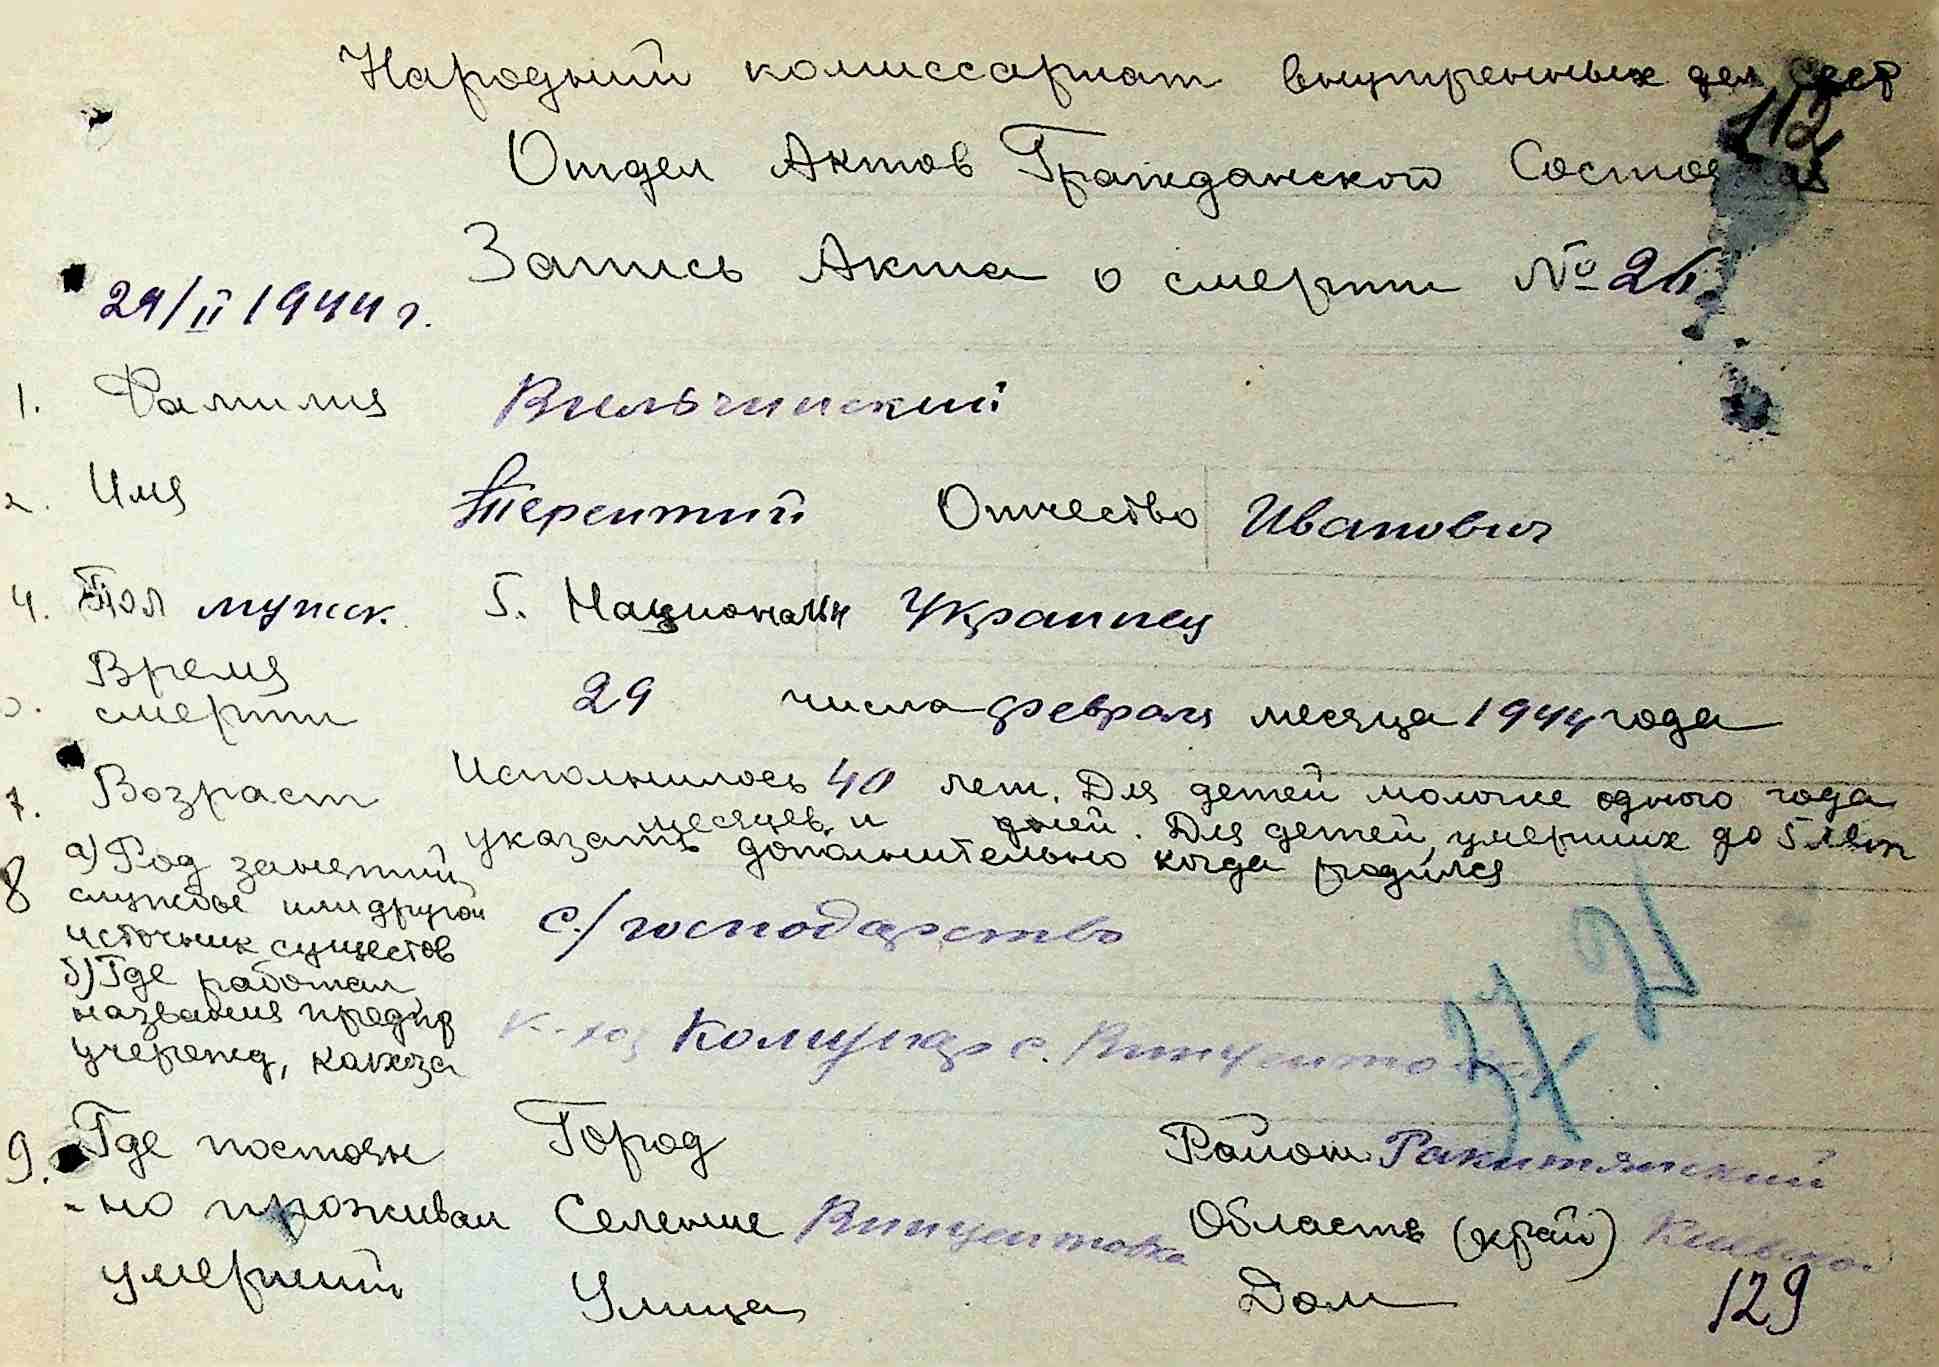 Народний комиссариат внутренных дел СССР
112
Отдел Актов Гражданской Состояния
Запись Акта о смерти №
29/II 1944 г.
1. Фамилия Вильчинский
2. Имя Терентий Отчество Иванович
4. Пол мужск. 5. Национальн Украинец
Время
смерти 29 числа февраля месяца 1944 года
7. Возраст Исполнилось 40 лет. Для детей моложе одного года
месяцев и дней. Для детей, умерших до 5 лет
указать дополнительно когда родился
8 а) Род занятий
службы или другой
источник существов с/господарство
б) Где работал
названия предпр к-хоз Комунар с. Винцентовка
учережд, колхоза
37-21
9. Где постоян Город Район Ракитянский
-но проживал Селение Винцентовка Область (край)
умерший Улица Дом
129